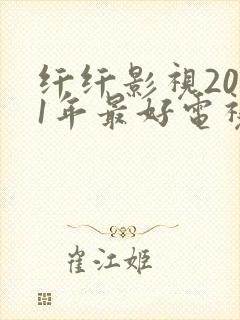 纤纤影視20
1年最好電視
崔江姬